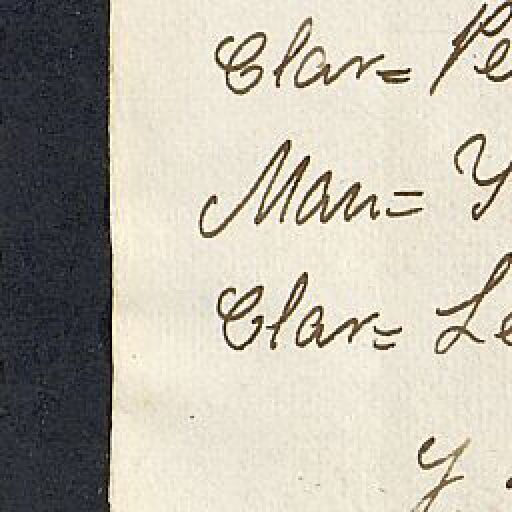 Clar= Pe
Man= Y
Clar= Le
y